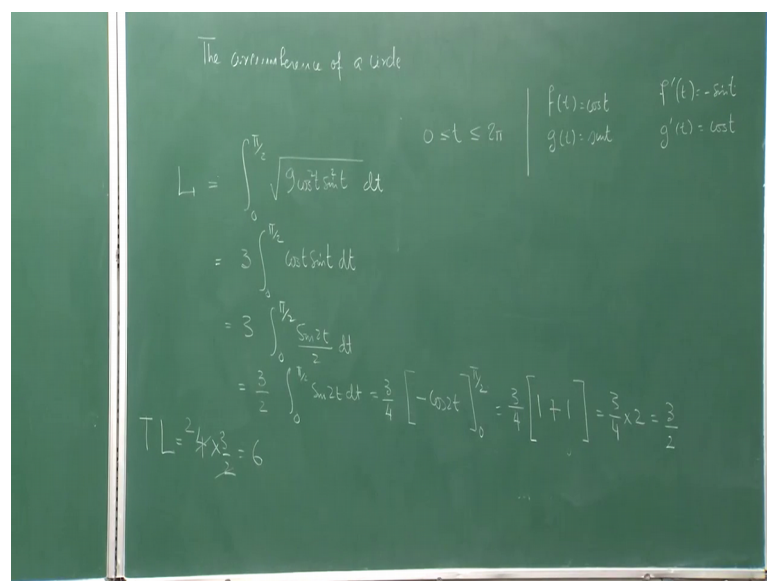 The circumference of a circle
f(t) = cost f'(t) = -sint
0 ≤ t ≤ 2π g(t) = sint g'(t) = cost
L = ∫₀^{π/2} √(9cos²t sin²t) dt
= 3 ∫₀^{π/2} cost sint dt
= 3 ∫₀^{π/2} Sin2t/2 dt
= 3/2 ∫₀^{π/2} Sin2t dt = 3/4 [-Cos2t]₀^{π/2} = 3/4 [1+1] = 3/4 × 2 = 3/2
TL = ²4 × 3/2 = 6